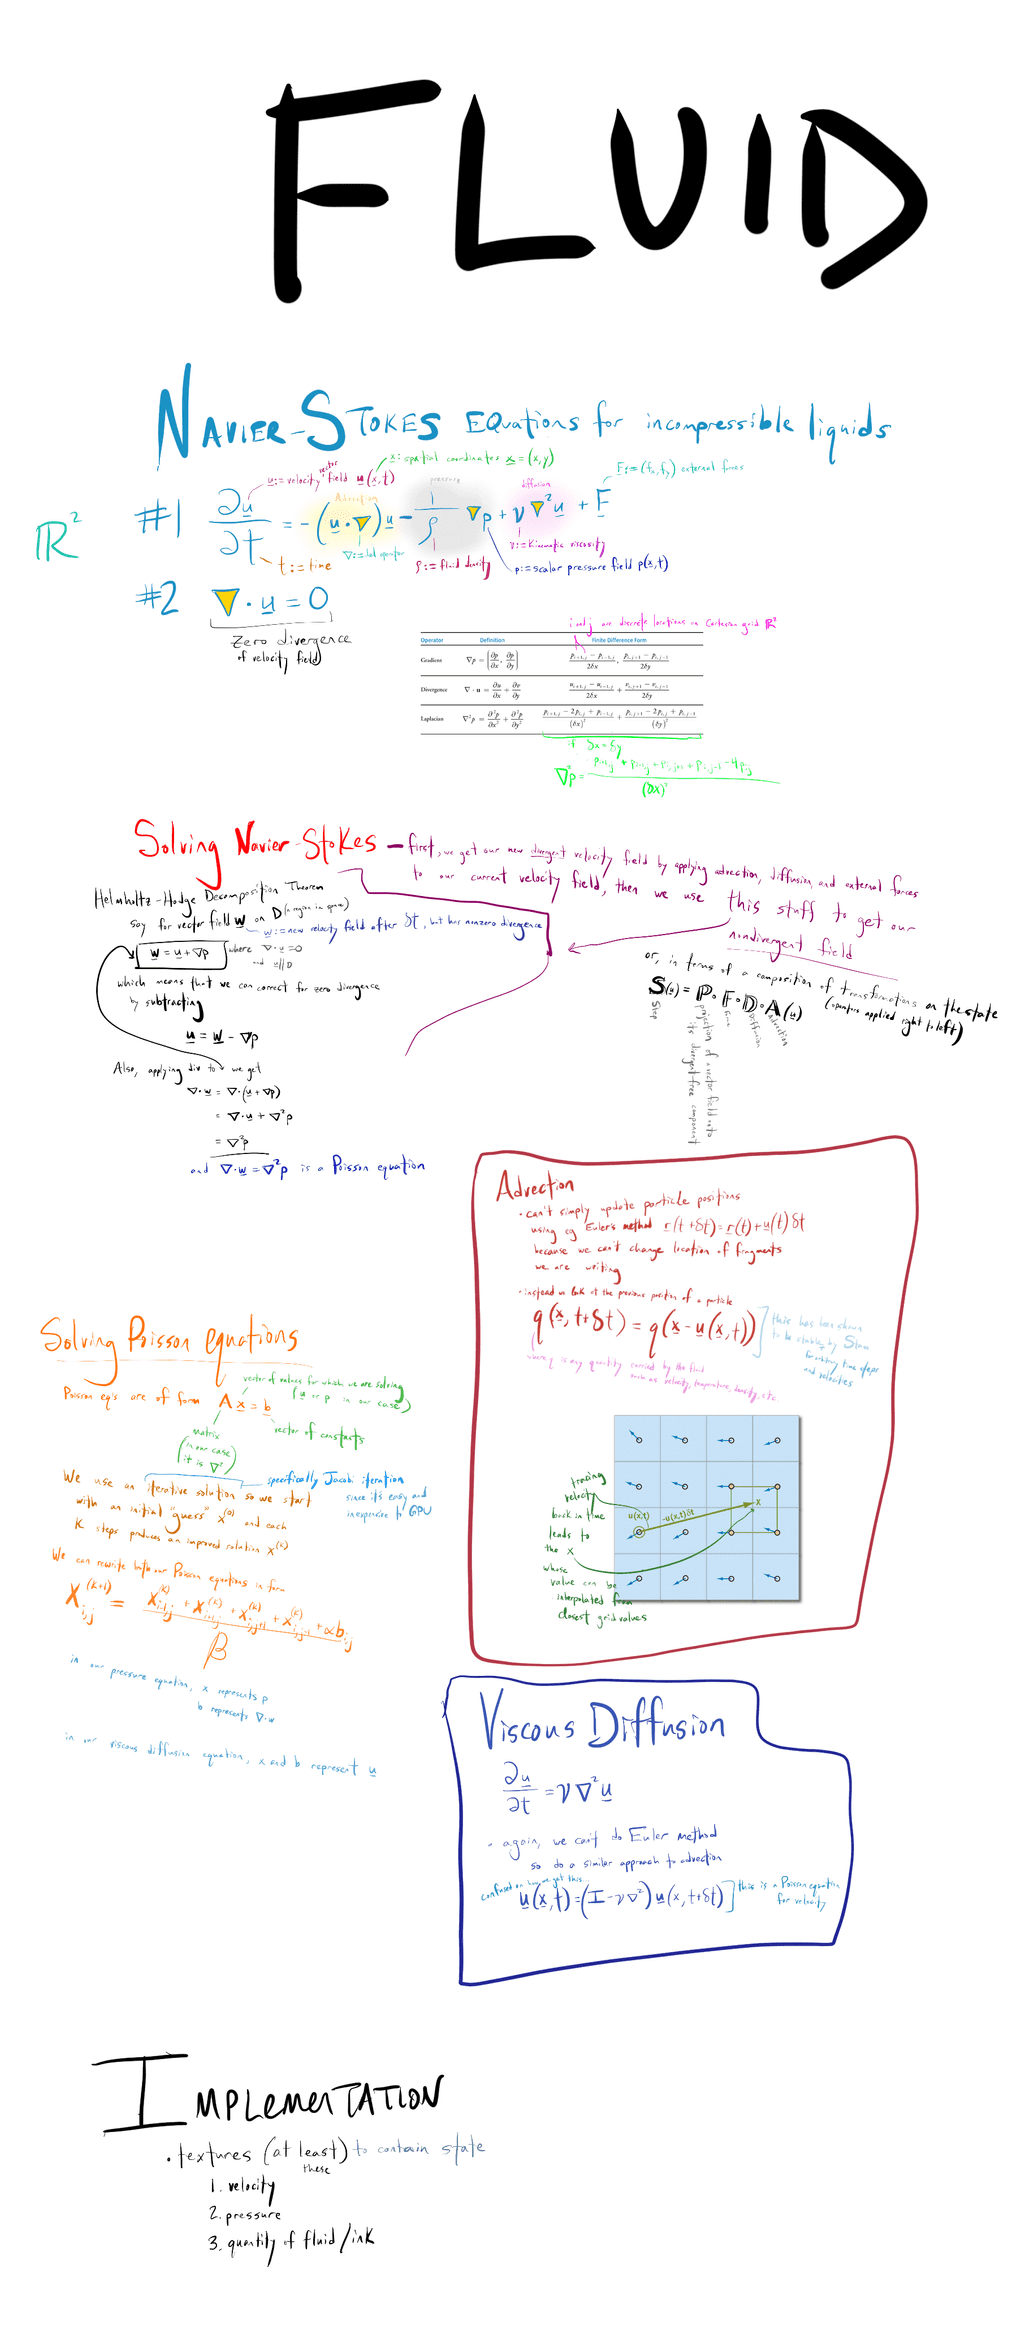 FLUID
NAVIER-STOKES EQuations for incompressible liquids
ℝ²
x := spatial coordinates x = (x,y)
u := velocity vector field u(x,t)
F := (fx, fy) external forces
Advection
pressure
diffusion
#1 ∂u/∂t = -(u·∇)u - 1/ρ ∇p + ν∇²u + F
t := time
∇ := del operator
ρ := fluid density
ν := kinematic viscosity
p := scalar pressure field p(x,t)
#2 ∇·u = 0
Zero divergence
of velocity field
i and j are discrete locations on Cartesian grid ℝ²
Operator Definition Finite Difference Form
Gradient ∇p = (∂p/∂x, ∂p/∂y) (p_{i+1,j} − p_{i−1,j})/2δx, (p_{i,j+1} − p_{i,j−1})/2δy
Divergence ∇·u = ∂u/∂x + ∂v/∂y (u_{i+1,j} − u_{i−1,j})/2δx + (v_{i,j+1} − v_{i,j−1})/2δy
Laplacian ∇²p = ∂²p/∂x² + ∂²p/∂y² (p_{i+1,j} − 2p_{i,j} + p_{i−1,j})/(δx)² + (p_{i,j+1} − 2p_{i,j} + p_{i,j−1})/(δy)²
if δx = δy
∇²p = (p_{i+1,j} + p_{i-1,j} + p_{i,j+1} + p_{i,j-1} - 4p_{i,j})/(δx)²
Solving Navier-Stokes — first, we get our new divergent velocity field by applying advection, diffusion, and external forces
to our current velocity field, then we use this stuff to get our
nondivergent field
Helmholtz-Hodge Decomposition Theorem
say for vector field w on D (a region in space)
w := new velocity field after δt, but has nonzero divergence
w = u + ∇p where ∇·u = 0
and u || D
which means that we can correct for zero divergence
by subtracting
u = w - ∇p
Also, applying div to we get
∇·w = ∇·(u + ∇p)
= ∇·u + ∇²p
= ∇²p
and ∇·w = ∇²p is a Poisson equation
or, in terms of a composition of transformations on the state
S(u) = P∘F∘D∘A(u) (operators applied right to left)
Step
projection of a vector field onto
its divergent-free component
Force
Diffusion
Advection
Advection
• can't simply update particle positions
using eg Euler's method r(t+δt) = r(t) + u(t)δt
because we can't change location of fragments
we are writing
• instead we look at the previous position of a particle
q(x, t+δt) = q(x - u(x,t))
this has been shown
to be stable by Stam
for arbitrary time steps
and velocities
where q is any quantity carried by the fluid
such as velocity, temperature, density, etc.
tracing
velocity
back in time
leads to
the x
whose
value can be
interpolated from
closest grid values
u(x,t)
-u(x,t)δt
x
Solving Poisson equations
Poisson eq's are of form A x = b
vector of values for which we are solving
(u or p in our case)
matrix
(in our case
it is ∇²)
vector of constants
We use an iterative solution so we start
with an initial "guess" x^(0) and each
K steps produces an improved solution x^(k)
specifically Jacobi iteration
since it's easy and
inexpensive to GPU
We can rewrite both our Poisson equations in form
x_{i,j}^(k+1) = (x_{i-1,j}^(k) + x_{i+1,j}^(k) + x_{i,j+1}^(k) + x_{i,j-1}^(k) + αb_{i,j})/β
in our pressure equation, x represents p
b represents ∇·w
in our viscous diffusion equation, x and b represent u
Viscous Diffusion
∂u/∂t = ν∇²u
• again, we can't do Euler method
so do a similar approach to advection
confused on how we got this...
u(x,t) = (I - ν∇²) u(x, t+δt)
this is a Poisson equation
for velocity
IMPLEMENTATION
• textures (at least) to contain state
these
1. velocity
2. pressure
3. quantity of fluid/ink